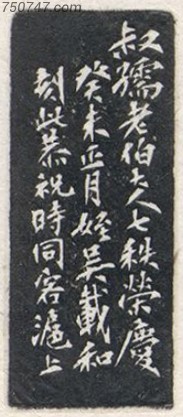 750747.com
叔孺老伯大人七秩榮慶
癸未正月姪吳載和
刻此恭祝時同客滬上